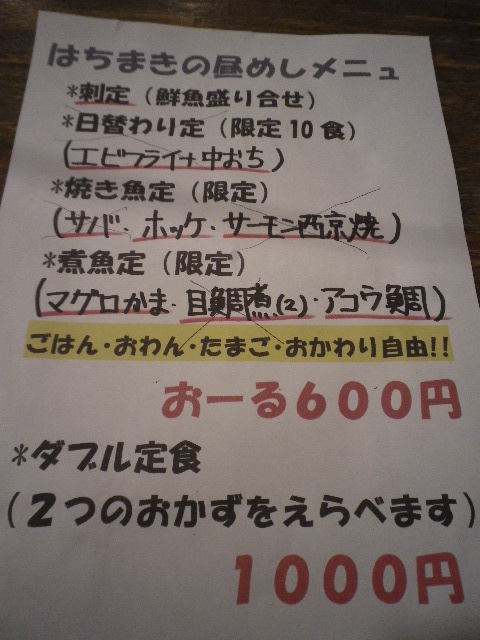 はちまきの昼めしメニュ
*刺定（鮮魚盛り合せ）
*日替わり定（限定10食）
（エビフライ+中おち）
*焼き魚定（限定）
（サバ・ホッケ・サーモン西京焼）
*煮魚定（限定）
（マグロかま・目鯛煮(2)・アコウ鯛）
ごはん・おわん・たまご・おかわり自由!!
おーる600円
*ダブル定食
（2つのおかずをえらべます）
1000円